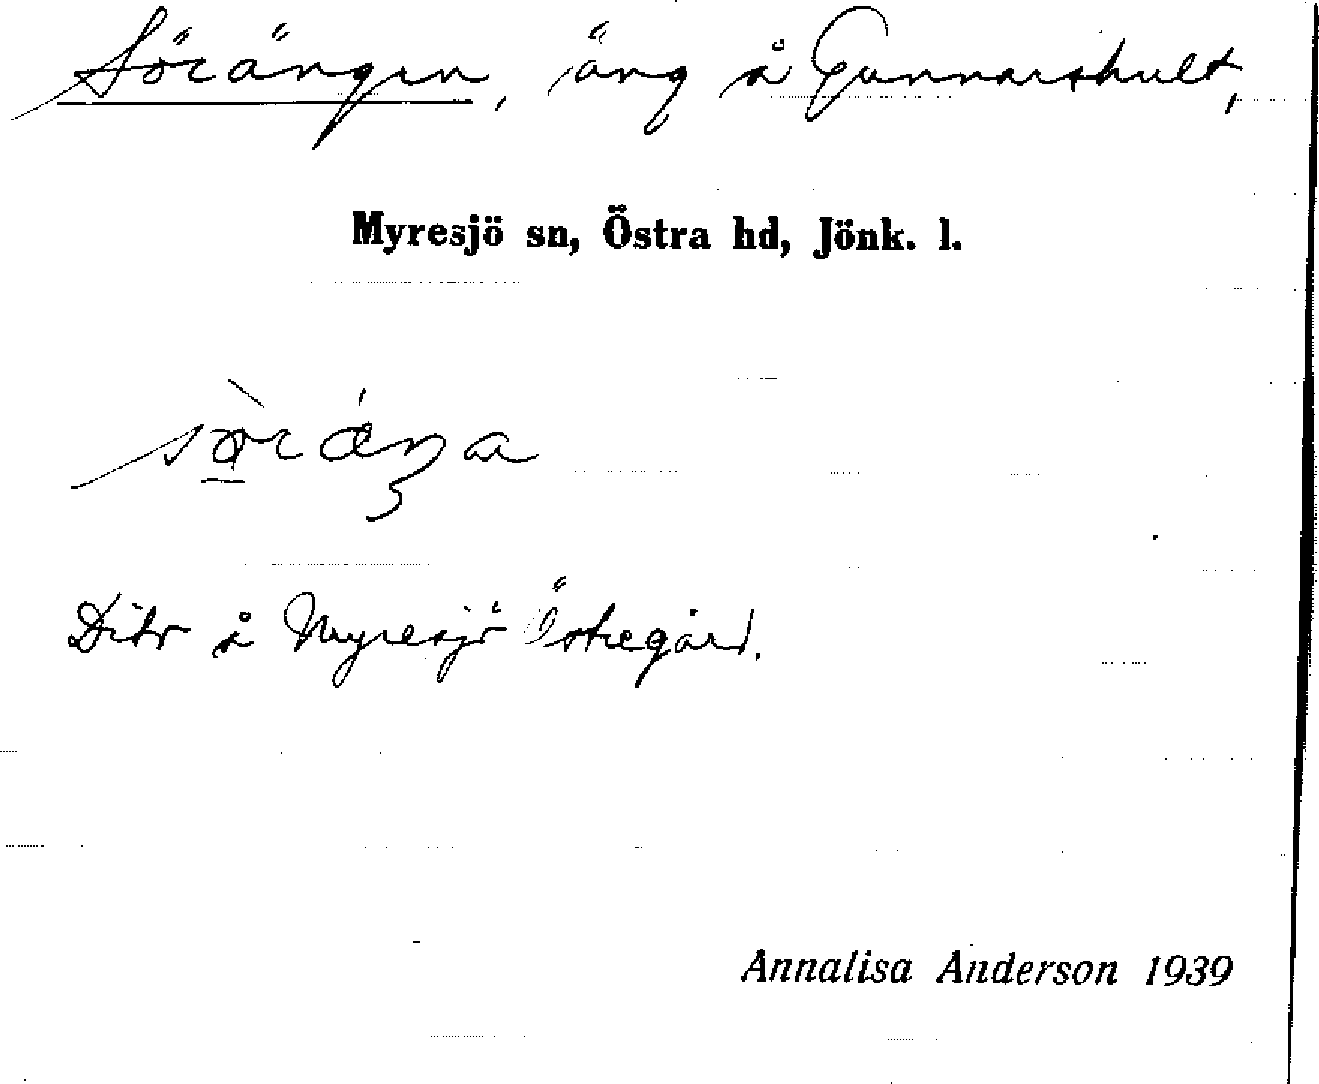 Sörängen, äng å Gunnarshult,
Myresjö sn, Östra hd, Jönk. l.
Dito å Myresjö Östregård.
Annalisa Anderson 1939